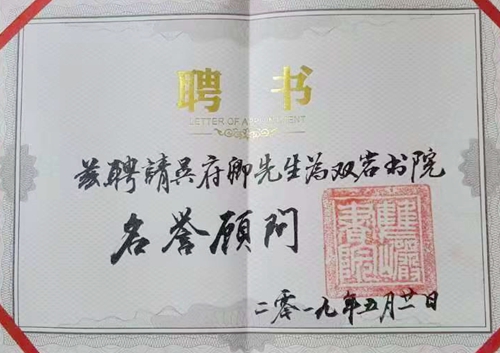 聘书
LETTER OF APPOINTMENT
兹聘請吳府卿先生为双岩书院
名誉顾问
雙巖
書院
二零一九年五月廿一日